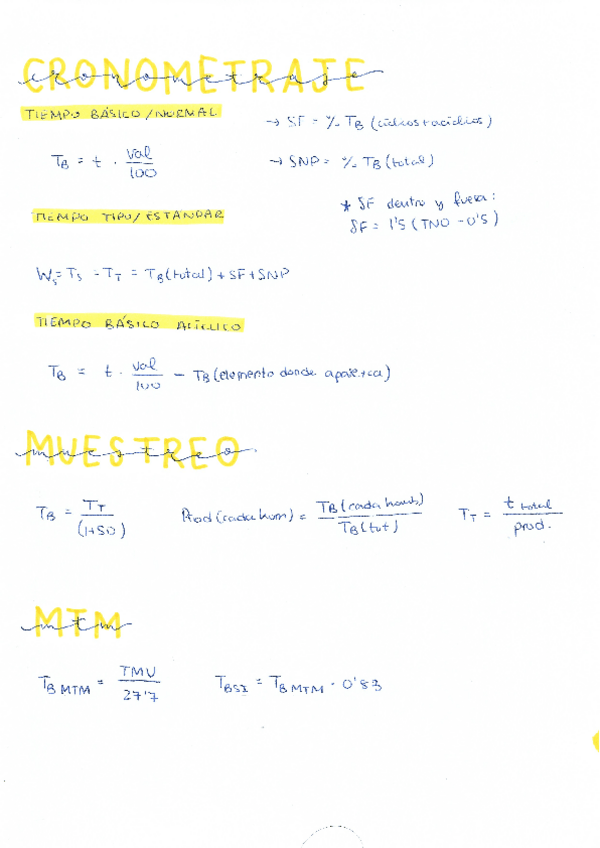 CRONOMETRAJE
cronometraje
TIEMPO BÁSICO/NORMAL
→ SF = % TB (cíclicos + acíclicos)
TB = t · val/100
→ SNP = % TB (total)
* SF dentro y fuera:
SF = 1'5 (TNO - 0'5)
TIEMPO TIPO/ESTÁNDAR
Ws = Ts = TT = TB (total) + SF + SNP
TIEMPO BÁSICO ACÍCLICO
TB = t · val/100 - TB (elemento donde aparezca)
MUESTREO
muestreo
TB = TT/(1+SD)
Prod (cada hom) = TB (cada homb)/TB (tot)
TT = t total/prod.
MTM
mtm
TB MTM = TMU/27'7
TBSI = TB MTM · 0'83